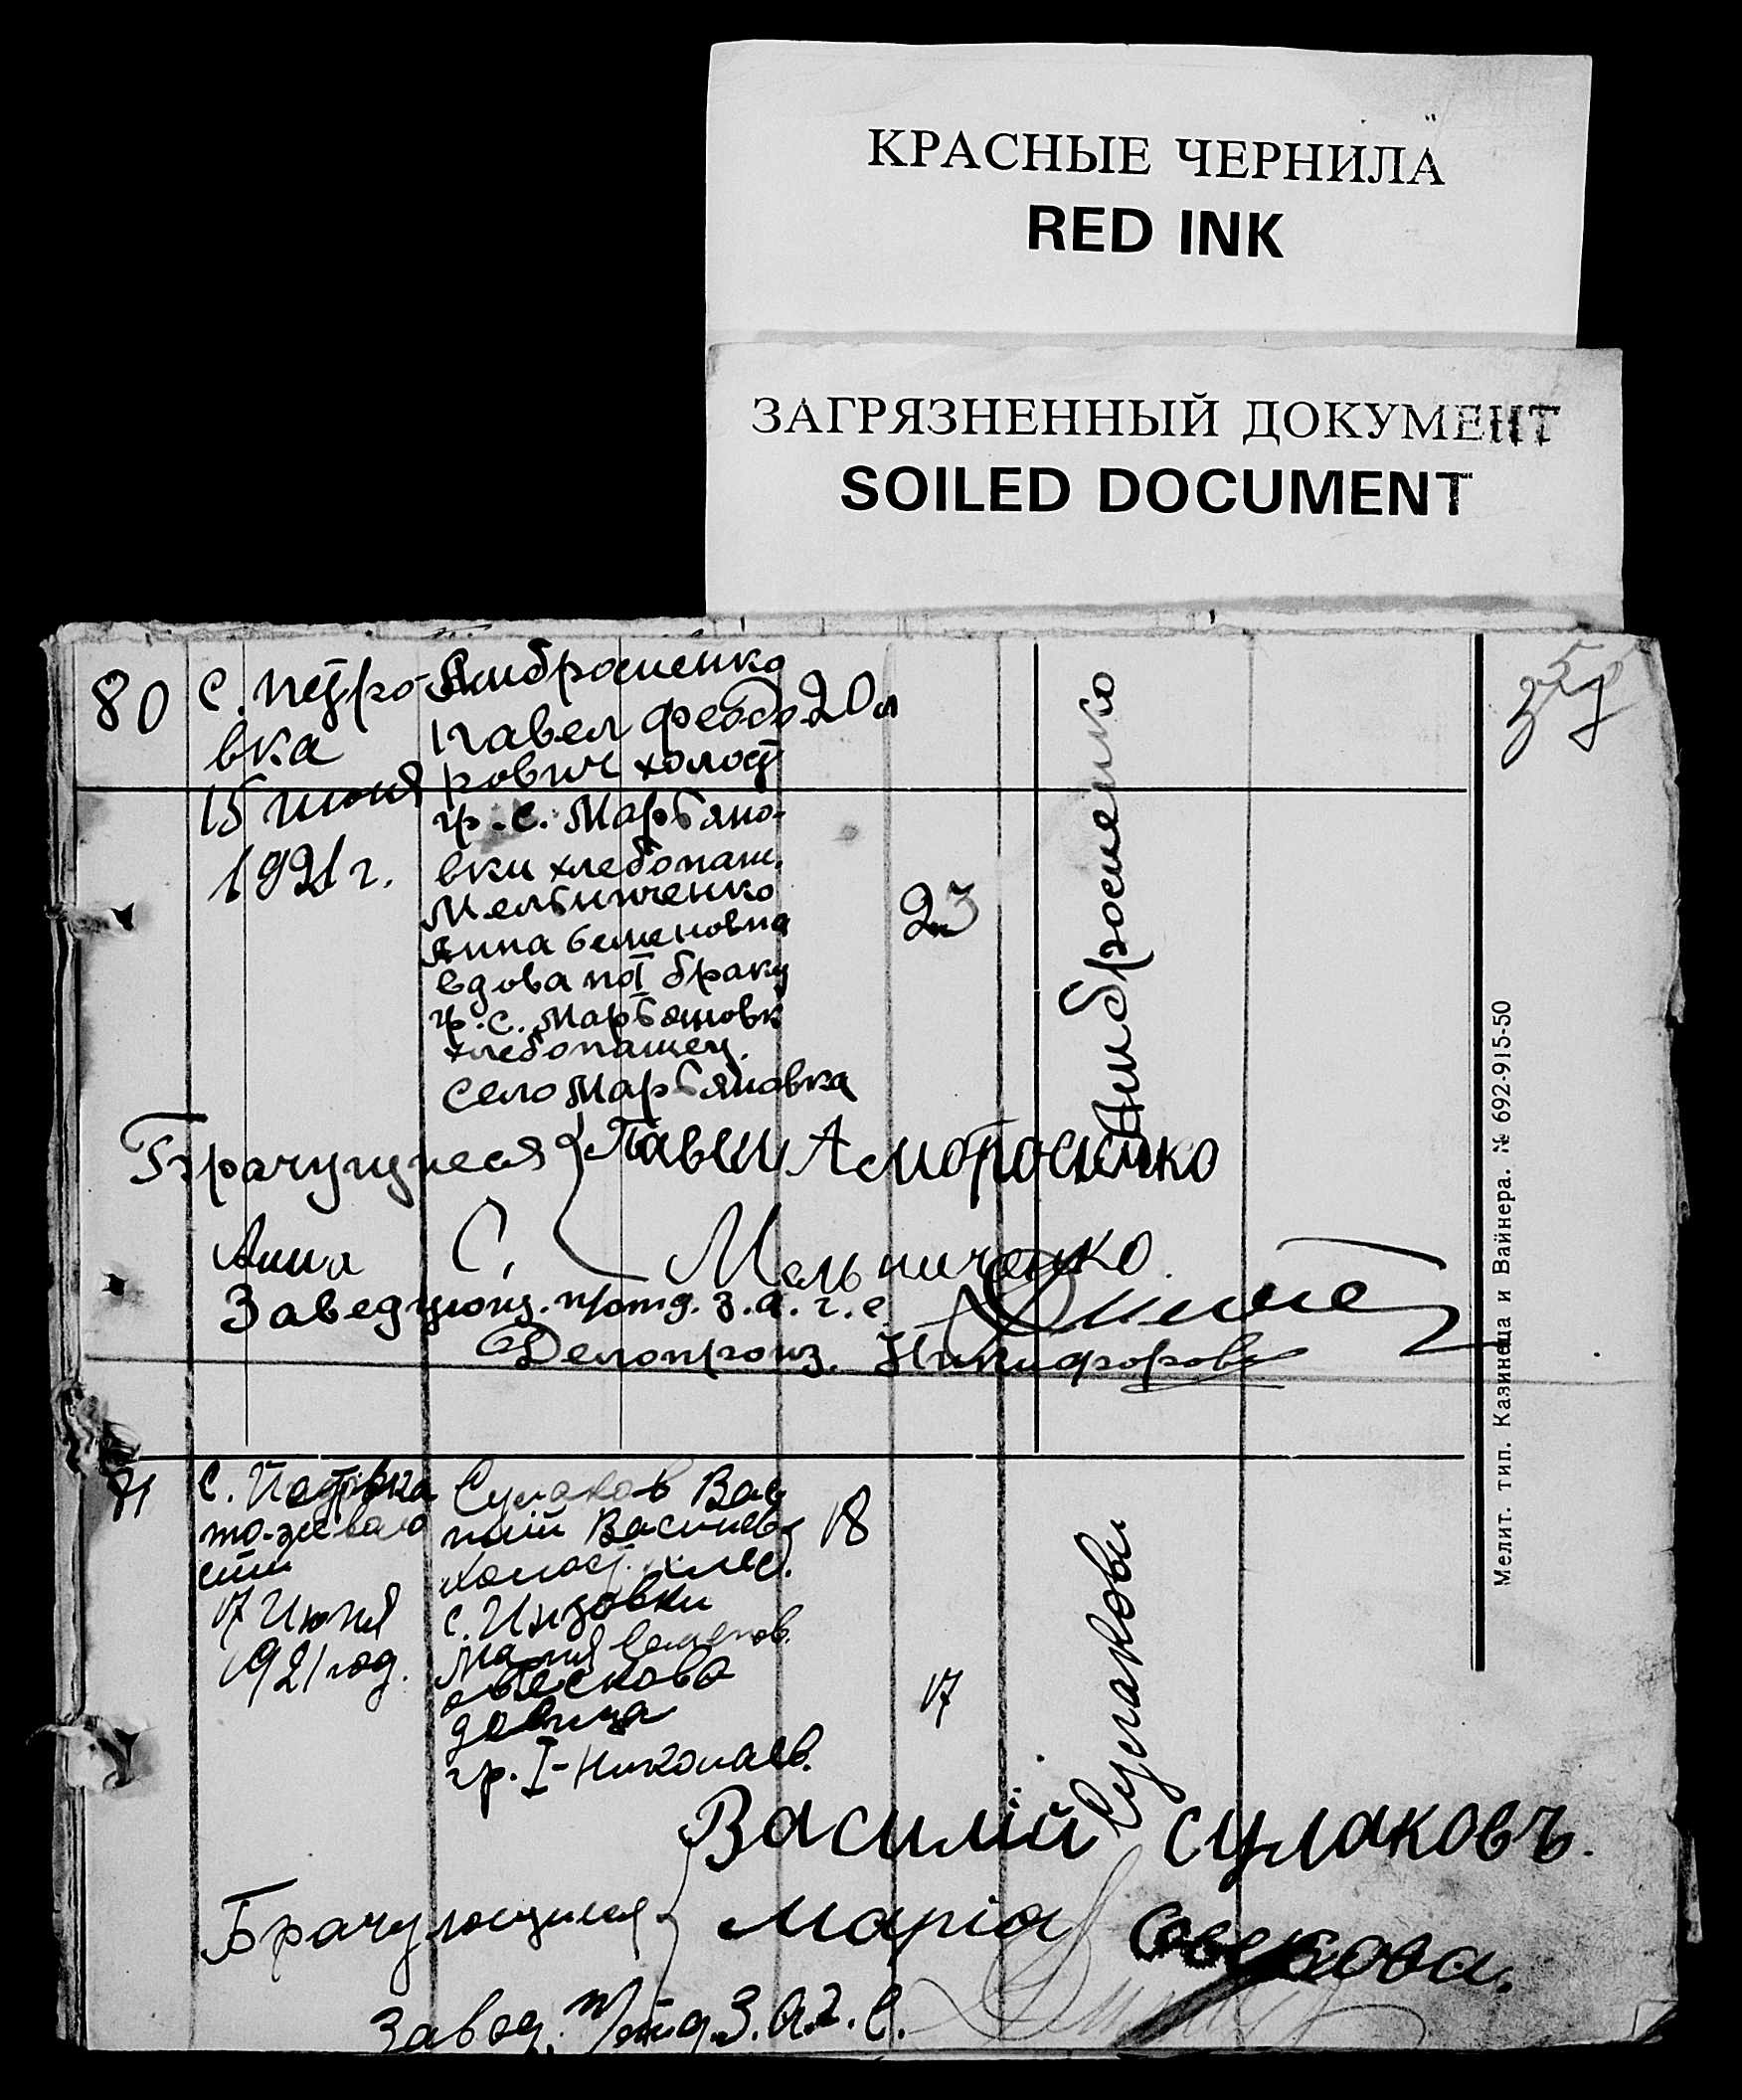 КРАСНЫЕ ЧЕРНИЛА
RED INK
ЗАГРЯЗНЕННЫЙ ДОКУМЕНТ
SOILED DOCUMENT
80
с. Петро-
вка
15 июня
1921 г.
Амбросиенко
Павел Феодо-
рович холост
гр. с. Марьяно-
вки хлебопаш.
Мельниченко
Анна Семеновна
вдова по I браку
гр. с. Марьяновк
хлебопашец.
село Марьяновка
20 л
23
Амбросиенко
Брачущиеся Павел Амбросиенко
Анна С. Мельниченко
Заведующ. п/отд. з. а. г. с.
Делопроиз. Никифоров
с. Петровка
то-же воло
сти
17 Июня
1921 год.
Сулаков Васи
лий Васильев
холост. хлеб.
с. Инзовки
Мария Семенов.
девица
гр. I-Николаев.
18
17
Сулаковы
Василій Сулаковъ.
Брачующиеся Марія
Завед. п/отд. З. А. Г. С.
Мелит. тип. Казинеца и Вайнера. № 692-915-50